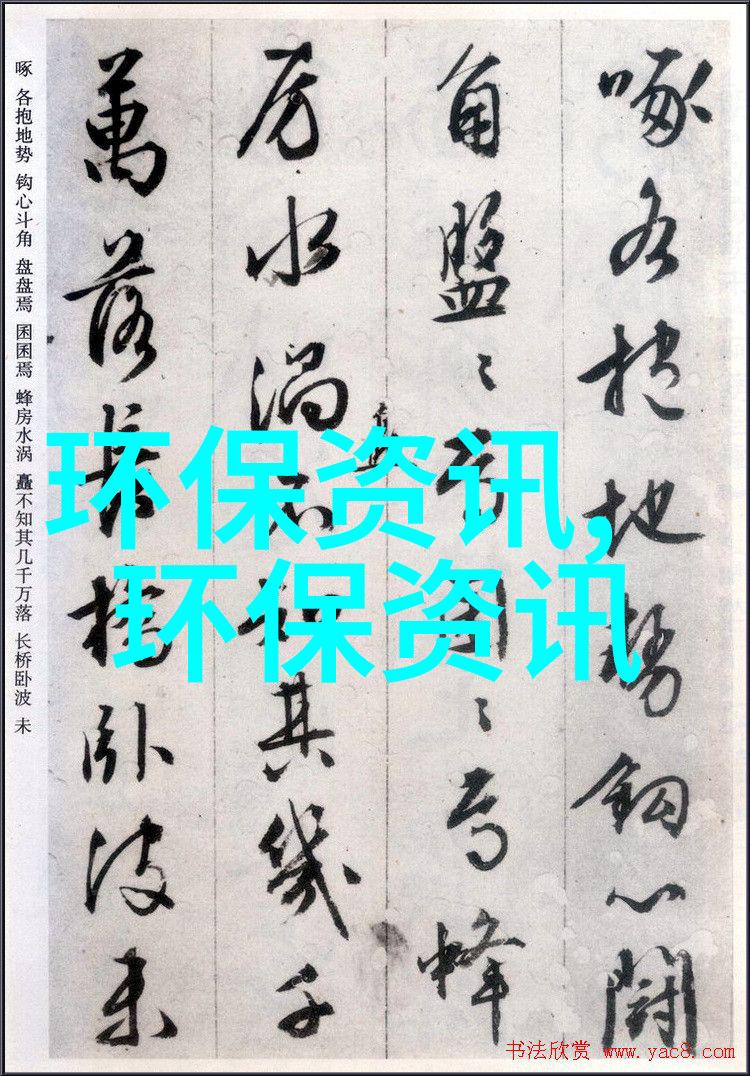 啄各抱地勢鈎心闘
角盤〻焉囷〻焉蜂
房水渦矗不知其幾千
萬落長橋卧波未
啄 各抱地势 钩心斗角 盘盘焉 囷囷焉 蜂房水涡 矗不知其几千万落 长桥卧波 未
环保资讯,
环保资讯
书法欣赏 www.yac8.com